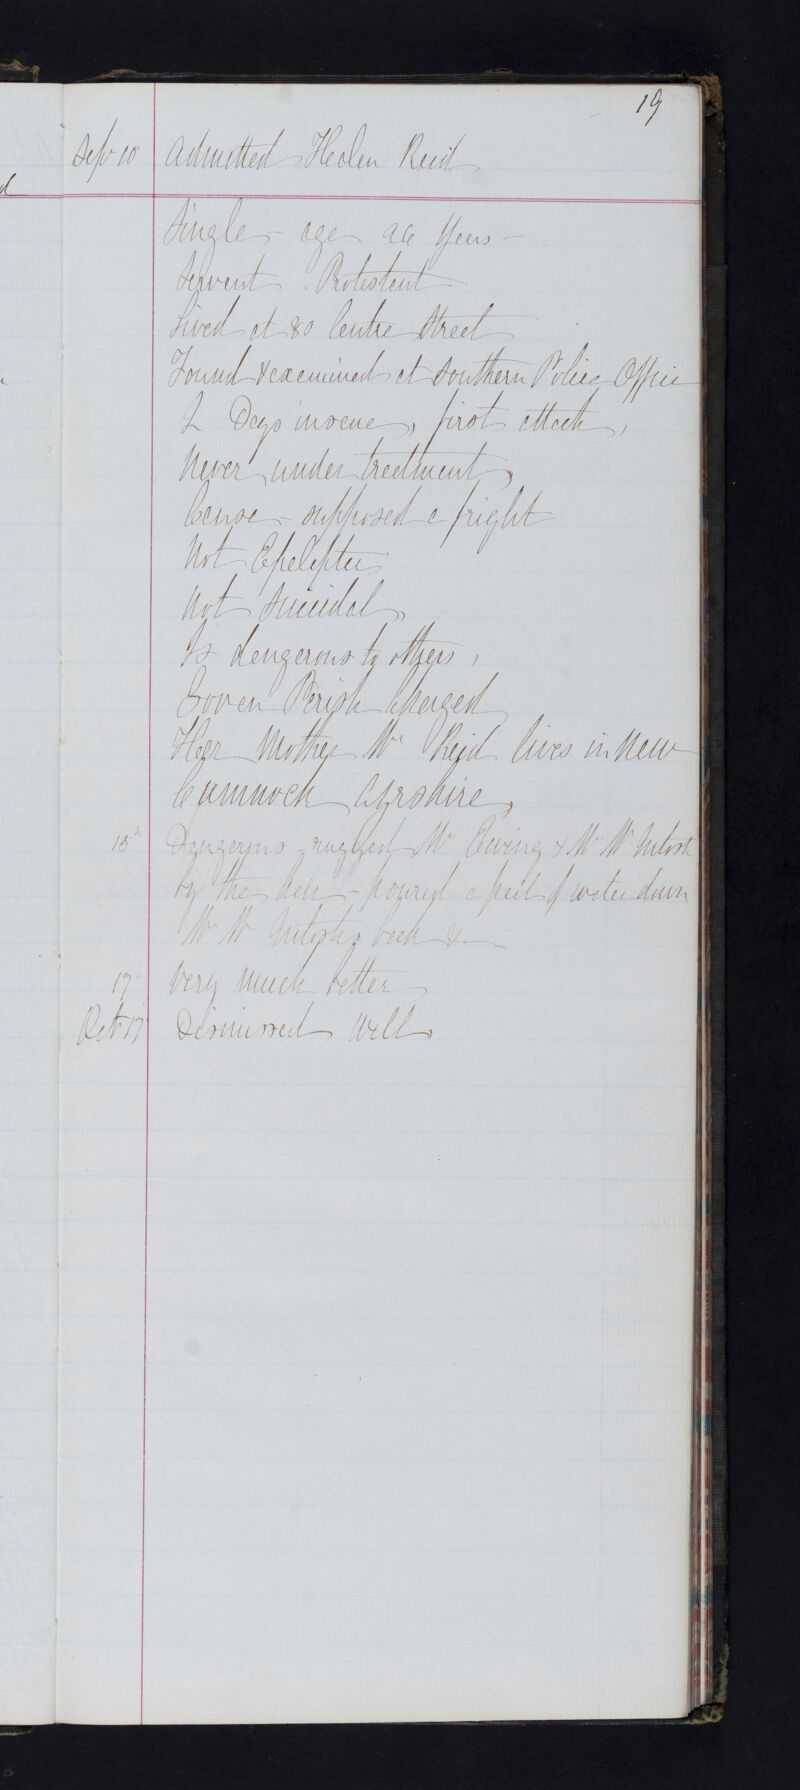 19
Sep 10 Admitted Helen Reid
Single - age 26 Years -
Servant. Protestant
Lived at 80 Centre Street
Found & examined at Southern Police Office
2 Days insane, first attack,
Never under treatment,
Cause - supposed a fright
Not Epeleptic
Not Suicidal,
Is dangerous to others,
Govan Parish Charged
Her Mother Mrs Reid lives in New
Cumnock Ayrshire,
15th Dangerous - rugged Mr Ewing & Mr McIntosh
by the hair - poured a pail of water down
Mr McIntosh's back &
17th Very much better
Oct 17 Dismissed Well